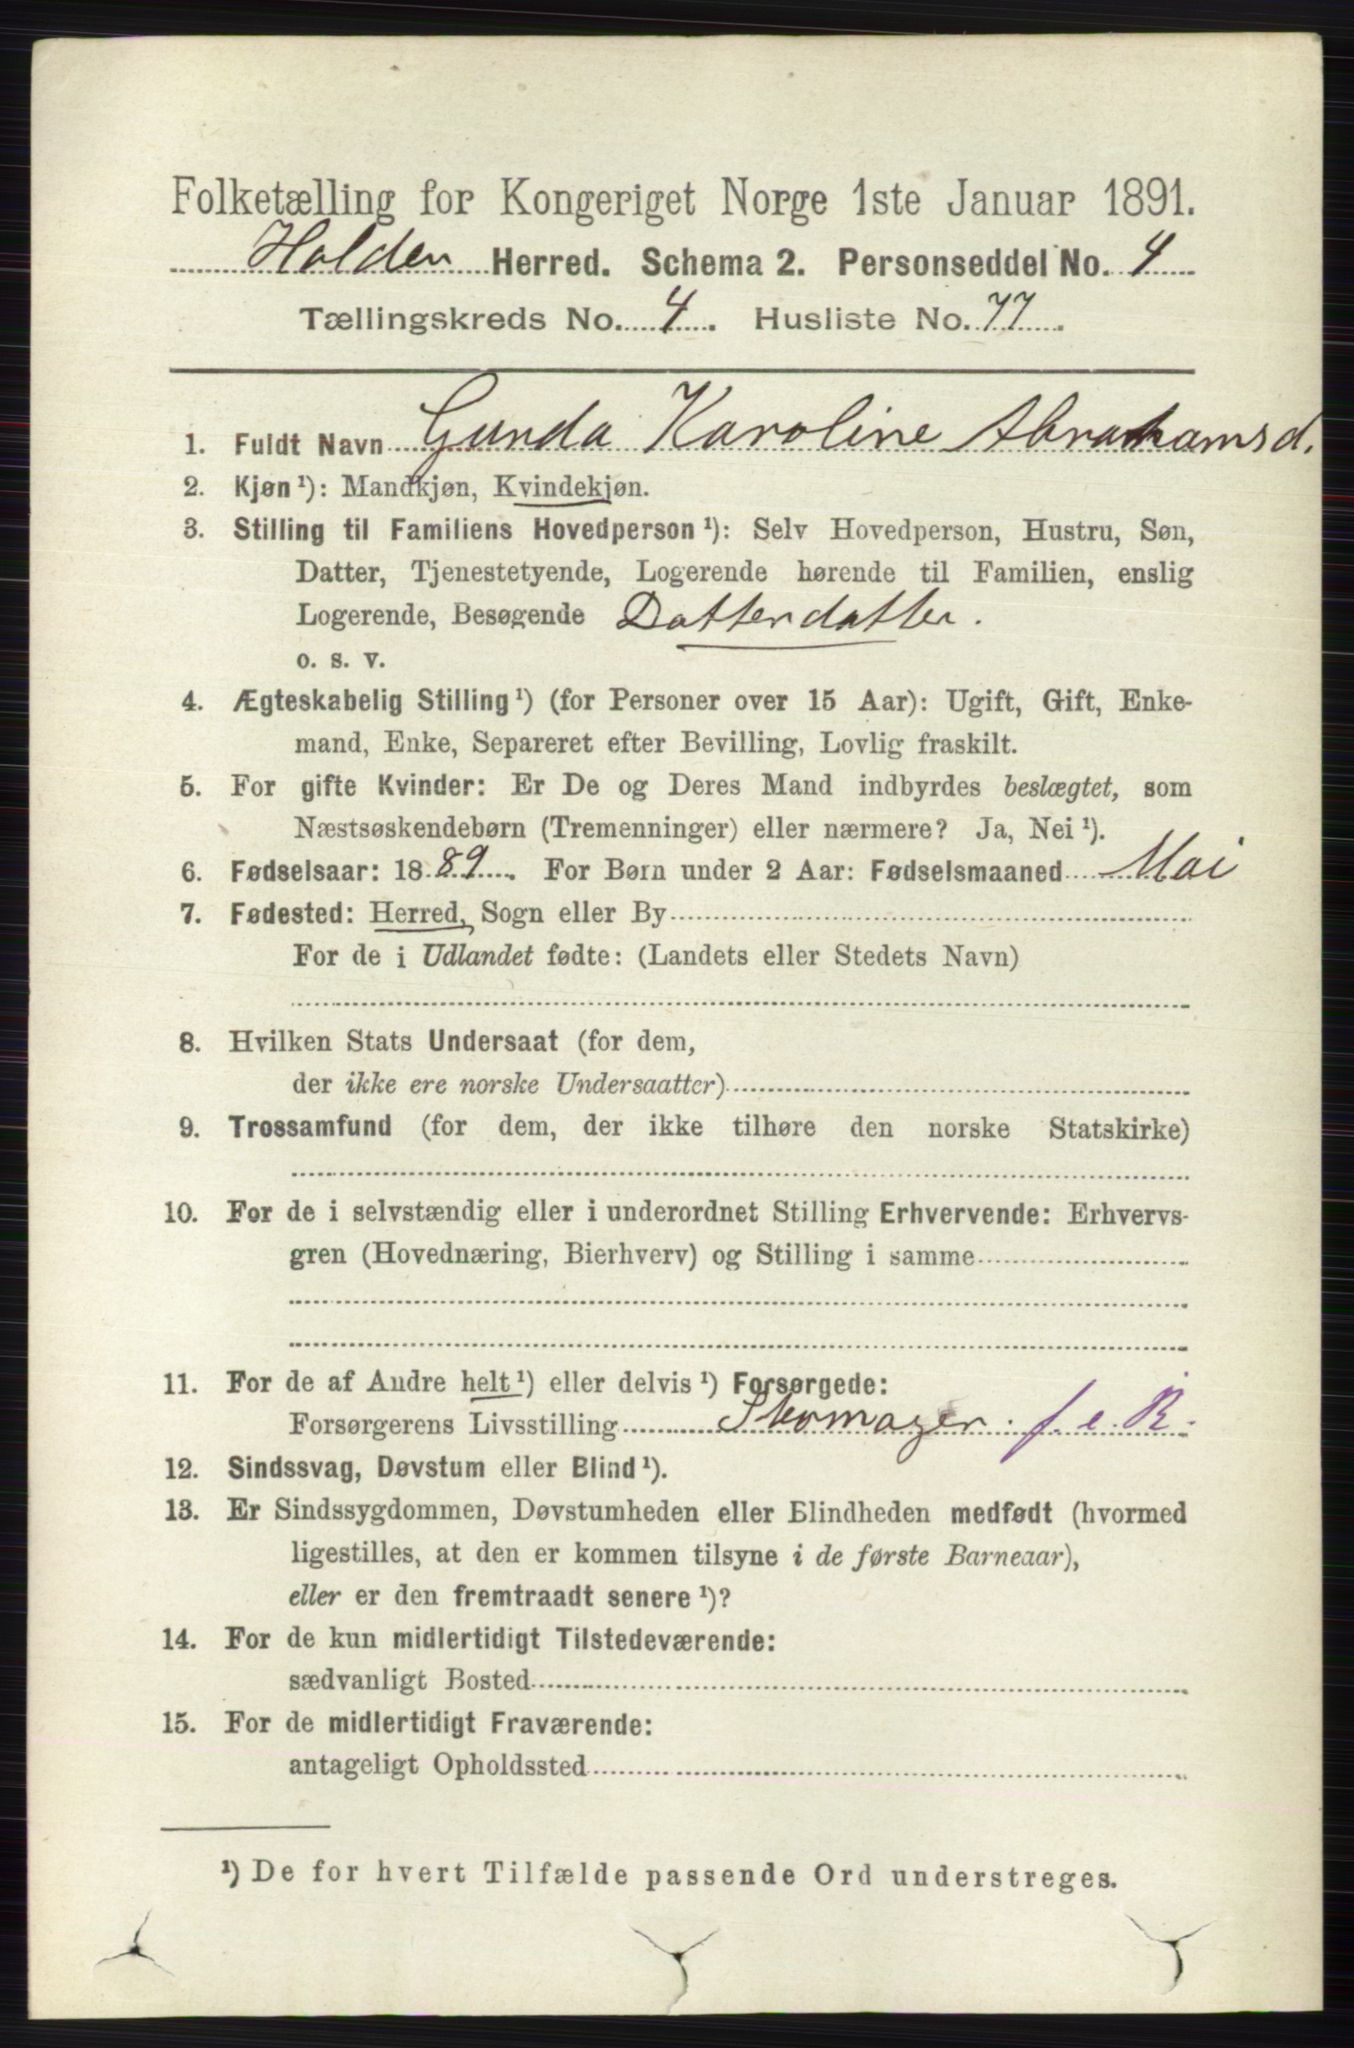 Folketælling for Kongeriget Norge 1ste Januar 1891.
Holden Herred. Schema 2. Personseddel No. 4
Tællingskreds No. 4. Husliste No. 77.
1. Fuldt Navn Gunda Karoline Abrahamsd.
2. Kjøn¹): Mandkjøn, Kvindekjøn.
3. Stilling til Familiens Hovedperson¹): Selv Hovedperson, Hustru, Søn,
Datter, Tjenestetyende, Logerende hørende til Familien, enslig
Logerende, Besøgende Datterdatter.
o. s. v.
4. Ægteskabelig Stilling¹) (for Personer over 15 Aar): Ugift, Gift, Enke-
mand, Enke, Separeret efter Bevilling, Lovlig fraskilt.
5. For gifte Kvinder: Er De og Deres Mand indbyrdes beslægtet, som
Næstsøskendebørn (Tremenninger) eller nærmere? Ja, Nei¹).
6. Fødselsaar: 1889. For Børn under 2 Aar: Fødselsmaaned Mai
7. Fødested: Herred, Sogn eller By
For de i Udlandet fødte: (Landets eller Stedets Navn)
8. Hvilken Stats Undersaat (for dem,
der ikke ere norske Undersaatter)
9. Trossamfund (for dem, der ikke tilhøre den norske Statskirke)
10. For de i selvstændig eller i underordnet Stilling Erhvervende: Erhvervs-
gren (Hovednæring, Bierhverv) og Stilling i samme
11. For de af Andre helt¹) eller delvis¹) Forsørgede:
Forsørgerens Livsstilling Skomager. f. e. R.
12. Sindssvag, Døvstum eller Blind¹).
13. Er Sindssygdommen, Døvstumheden eller Blindheden medfødt (hvormed
ligestilles, at den er kommen tilsyne i de første Barneaar),
eller er den fremtraadt senere¹)?
14. For de kun midlertidigt Tilstedeværende:
sædvanligt Bosted
15. For de midlertidigt Fraværende:
antageligt Opholdssted
¹) De for hvert Tilfælde passende Ord understreges.